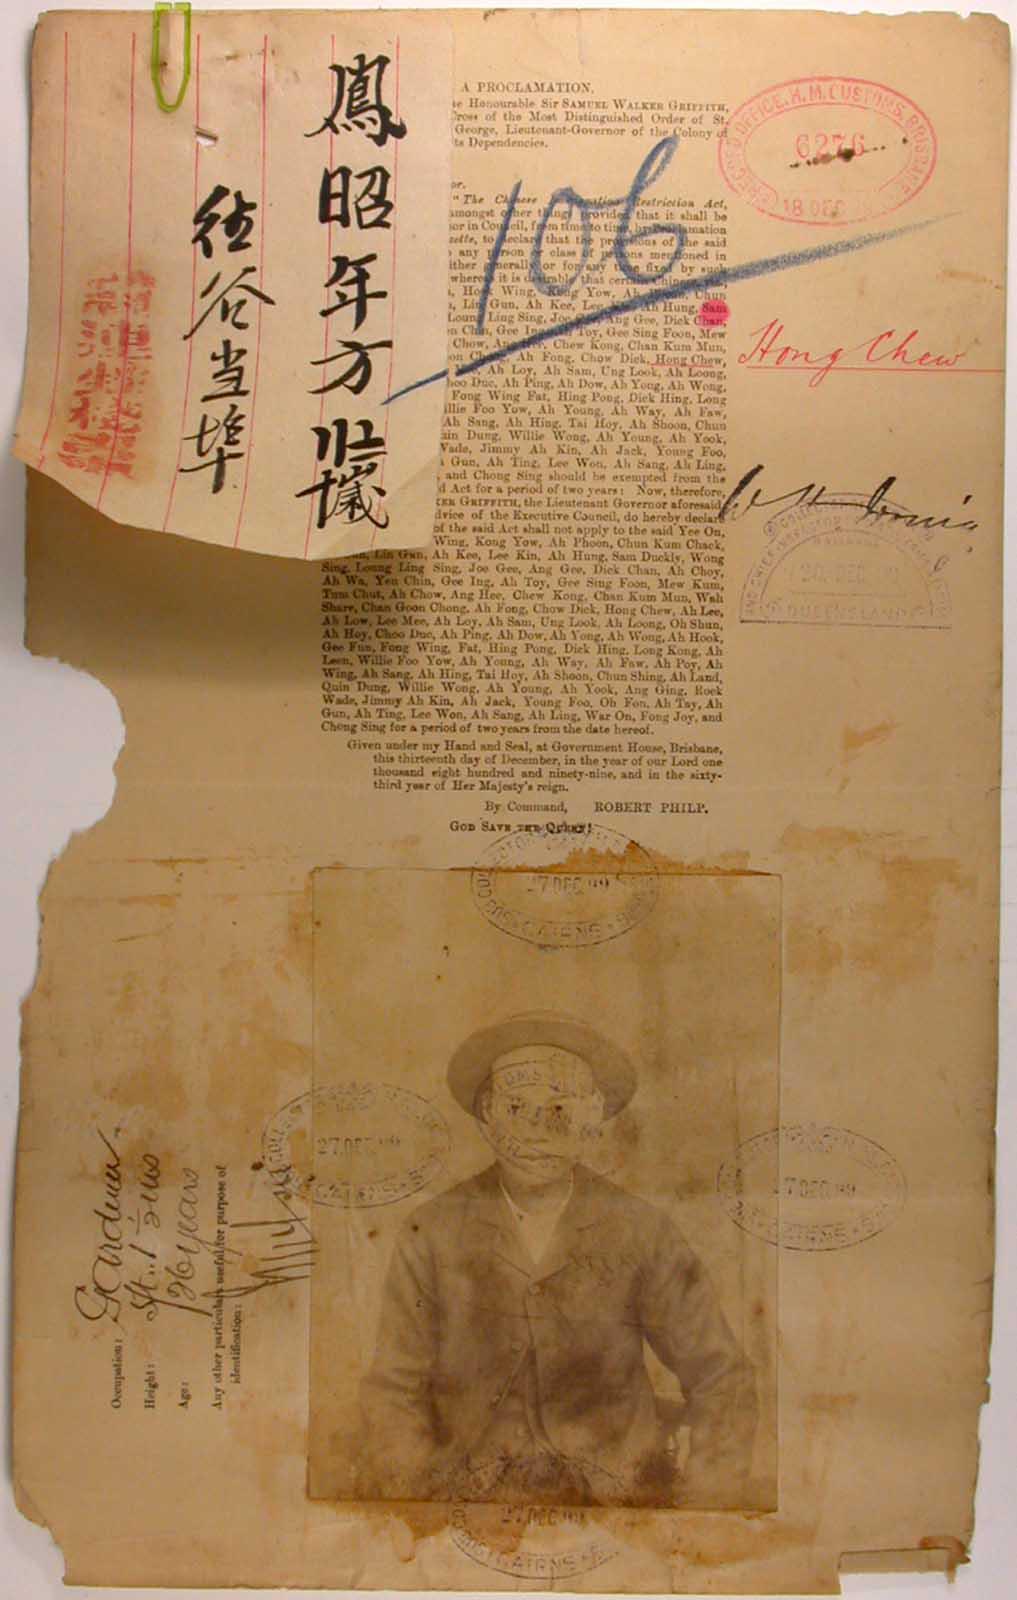 鳳昭年方卅
往谷当埠
A PROCLAMATION.
Honourable Sir SAMUEL WALKER GRIFFITH,
Cross of the Most Distinguished Order of St.
George, Lieutenant-Governor of the Colony of
its Dependencies.
106
"The Chinese Restriction Act,
amongst other things provides that it shall be
in Council, from time to time, by Proclamation
to declare that the provisions of the said
any person or class of persons mentioned in
generally or for any time fixed by such
whereas it is desirable that certain Chinese
Hock Wing, Kong Yow, Ah Phoon, Chun
Lin Gun, Ah Kee, Lee Ah Hung, Sam
Loung Ling Sing, Joe Gee, Ang Gee, Dick Chan,
Chin, Gee Ing, Ah Toy, Gee Sing Foon, Mew
Chow, Ang Hee, Chew Kong, Chan Kum Mun,
Ah Fong, Chow Dick, Hong Chew,
Ah Loy, Ah Sam, Ung Look, Ah Loong,
Choo Duc, Ah Ping, Ah Dow, Ah Yong, Ah Wong,
Fong Wing Fat, Hing Pong, Dick Hing, Long
Willie Foo Yow, Ah Young, Ah Way, Ah Faw,
Ah Sang, Ah Hing, Tai Hoy, Ah Shoon, Chun
Quin Dung, Willie Wong, Ah Young, Ah Yook,
Wade, Jimmy Ah Kin, Ah Jack, Young Foo,
Gun, Ah Ting, Lee Won, Ah Sang, Ah Ling,
and Chong Sing should be exempted from the
Act for a period of two years: Now, therefore,
GRIFFITH, the Lieutenant Governor aforesaid,
advice of the Executive Council, do hereby declare
of the said Act shall not apply to the said Yee On,
Wing, Kong Yow, Ah Phoon, Chun Kum Chack,
Lin Gun, Ah Kee, Lee Kin, Ah Hung, Sam Duckly, Wong
Sing, Loung Ling Sing, Joe Gee, Ang Gee, Dick Chan, Ah Choy,
Ah Wa, Yen Chin, Gee Ing, Ah Toy, Gee Sing Foon, Mew Kum,
Tum Chut, Ah Chow, Ang Hee, Chew Kong, Chan Kum Mun, Wah
Share, Chan Goon Chong, Ah Fong, Chow Dick, Hong Chew, Ah Lee,
Ah Low, Lee Mee, Ah Loy, Ah Sam, Ung Look, Ah Loong, Oh Shun,
Ah Hoy, Choo Duc, Ah Ping, Ah Dow, Ah Yong, Ah Wong, Ah Hook,
Gee Fun, Fong Wing, Fat, Hing Pong, Dick Hing, Long Kong, Ah
Leen, Willie Foo Yow, Ah Young, Ah Way, Ah Faw, Ah Poy, Ah
Wing, Ah Sang, Ah Hing, Tai Hoy, Ah Shoon, Chun Shing, Ah Land,
Quin Dung, Willie Wong, Ah Young, Ah Yook, Ang Ging, Rock
Wade, Jimmy Ah Kin, Ah Jack, Young Foo, Oh Fon, Ah Tay, Ah
Gun, Ah Ting, Lee Won, Ah Sang, Ah Ling, War On, Fong Joy, and
Chong Sing for a period of two years from the date hereof.
Given under my Hand and Seal, at Government House, Brisbane,
this thirteenth day of December, in the year of our Lord one
thousand eight hundred and ninety-nine, and in the sixty-
third year of Her Majesty's reign.
By Command, ROBERT PHILP.
GOD SAVE THE QUEEN!
OFFICE, H.M. CUSTOMS, BRISBANE
6276
18 DEC
Hong Chew
QUEENSLAND
27 DEC 99
CAIRNS
27 DEC 99
27 DEC 99
27 DEC 99
CAIRNS
Occupation: Gardener
Height:
Age: 26 years
Any other particulars useful for purpose of
identification: